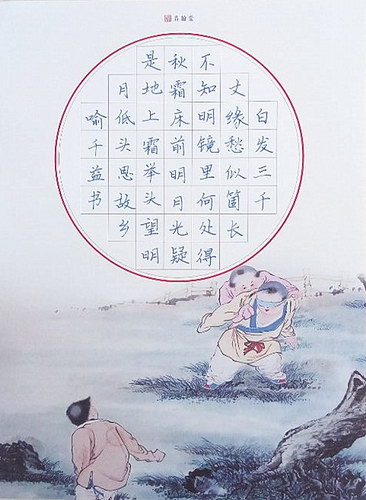 白发三千
丈缘愁似箇长
不知明镜里何处得
秋霜床前明月光疑
是地上霜举头望明
月低头思故乡
喻千益书